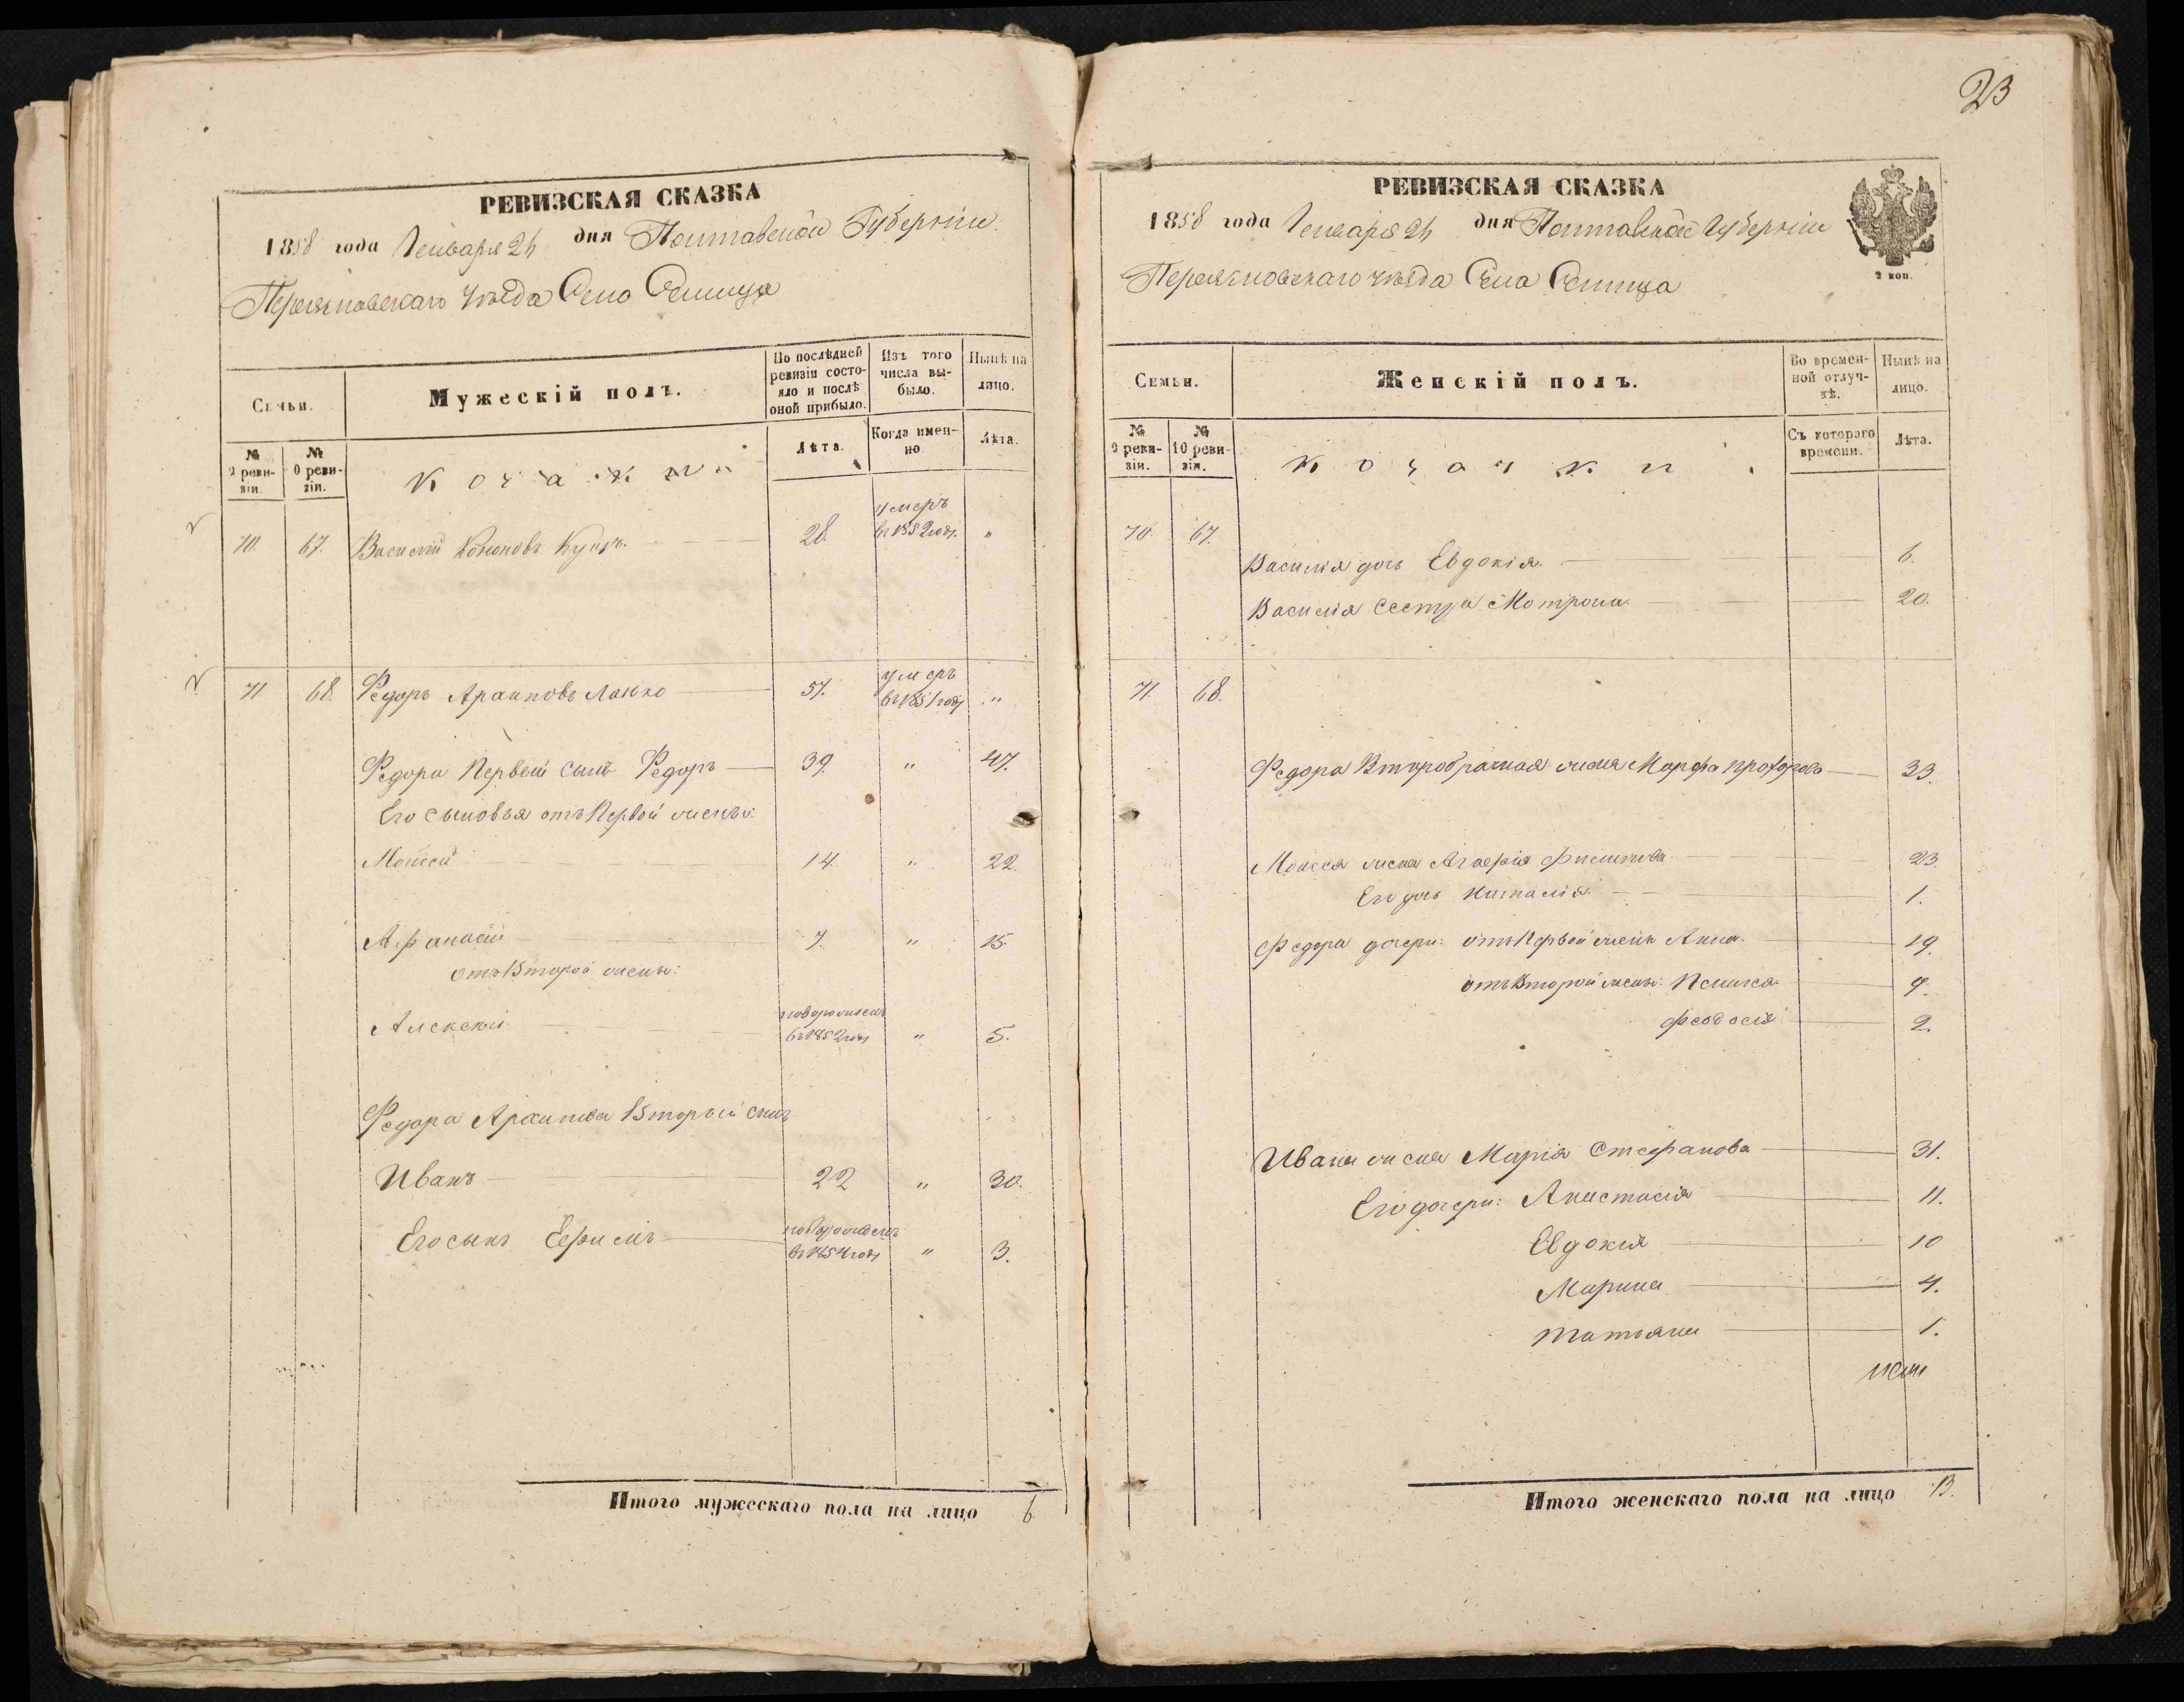 РЕВИЗСКАЯ СКАЗКА
1858 года Генваря 24 дня Полтавской Губерніи
Переяславскаго Уѣзда Село
Семьи.
Мужескій полъ.
По послѣдней ревизіи состояло и послѣ оной прибыло.
Изъ того числа выбыло.
Нынѣ на лицо.
№ 9 ревизіи.
№ 10 ревизіи.
Козаки
Лѣта.
Когда именно
Лѣта.
70. 67. Василій Кононовъ 28. умеръ въ 1852 году. "
71 68. Федоръ Архиповъ 57. умеръ въ 1851 году "
Федора Первый сынъ Федоръ 39. " 47.
Его сыновья отъ Первой жены:
Моисей 14. " 22.
Афанасій 7. " 15.
отъ Второй жены:
Алексей новорожденъ въ 1852 году " 5.
Федора Архипова Вторый сынъ
Иванъ 22 " 30.
Его сынъ Ефимъ новорожденъ въ 1854 году " 3.
Итого мужескаго пола на лицо 6.
23
РЕВИЗСКАЯ СКАЗКА
1858 года Генваря 24 дня Полтавской Губерніи
Переяславскаго Уѣзда Села
2 коп.
Семьи.
Женскій полъ.
Во временной отлучкѣ.
Нынѣ на лицо.
№ 9 ревизіи.
№ 10 ревизіи.
Козачки
Съ котораго времени.
Лѣта.
70. 67.
Василія дочь Евдокія. 6.
Василія сестра Мотрона. 20.
71. 68.
Федора Второбрачная жена Марфа Прохорова 33.
Моисея жена Агафія Филипова 23.
Его дочь Наталія 1.
Федора дочери: отъ Первой жены Анна. 19.
отъ Второй жены: 9.
Феодосія 2.
Ивана жена Марія Стефанова 31.
Его дочери: Анастасія 11.
Евдокія 10
Марина 4.
Татьяна 1.
Итого женскаго пола на лицо 13.